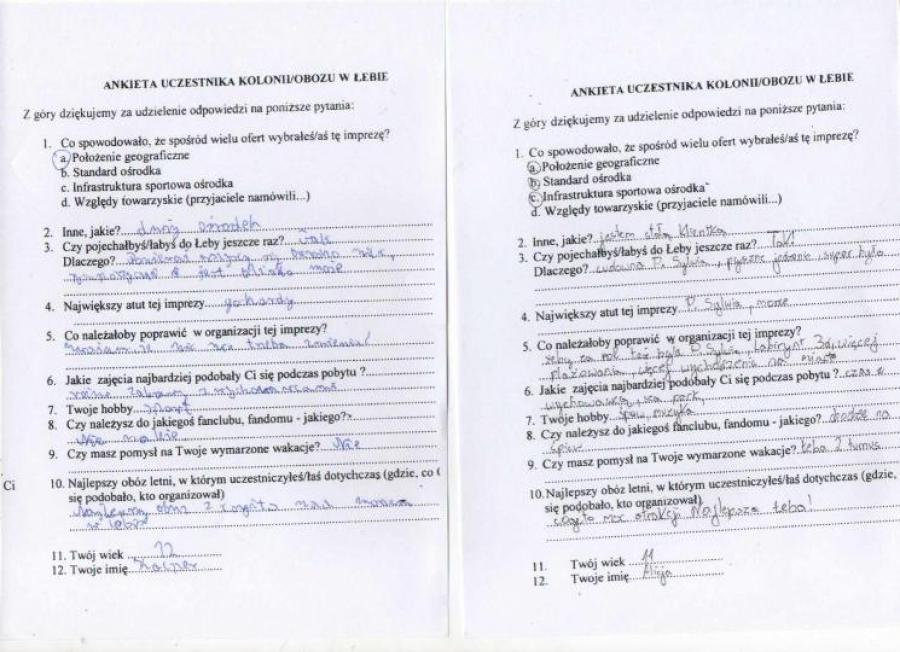 ANKIETA UCZESTNIKA KOLONII/OBOZU W ŁEBIE
Z góry dziękujemy za udzielenie odpowiedzi na poniższe pytania:
1. Co spowodowało, że spośród wielu ofert wybrałeś/aś tę imprezę?
a. Położenie geograficzne
b. Standard ośrodka
c. Infrastruktura sportowa ośrodka
d. Względy towarzyskie (przyjaciele namówili...)
2. Inne, jakie? ośrodek
3. Czy pojechałbyś/łabyś do Łeby jeszcze raz?
Dlaczego? jest blisko morze
4. Największy atut tej imprezy gokardy
5. Co należałoby poprawić w organizacji tej imprezy?
Uważam, że nic nie trzeba zmieniać
6. Jakie zajęcia najbardziej podobały Ci się podczas pobytu ?
zabawy z wychowawcami
7. Twoje hobby sport
8. Czy należysz do jakiegoś fanclubu, fandomu - jakiego?
Nie należę
9. Czy masz pomysł na Twoje wymarzone wakacje? Nie
Ci
10. Najlepszy obóz letni, w którym uczestniczyłeś/łaś dotychczas (gdzie, co
się podobało, kto organizował)
Najlepszy obóz z Cogito nad morzem
w Łebie
11. Twój wiek 12
12. Twoje imię Kacper
ANKIETA UCZESTNIKA KOLONII/OBOZU W ŁEBIE
Z góry dziękujemy za udzielenie odpowiedzi na poniższe pytania:
1. Co spowodowało, że spośród wielu ofert wybrałeś/aś tę imprezę?
a. Położenie geograficzne
b. Standard ośrodka
c. Infrastruktura sportowa ośrodka
d. Względy towarzyskie (przyjaciele namówili...)
2. Inne, jakie? jestem stałą klientką
3. Czy pojechałbyś/łabyś do Łeby jeszcze raz? Tak!
Dlaczego? cudowna P. Sylwia, pyszne jedzenie i super było
4. Największy atut tej imprezy P. Sylwia, morze
5. Co należałoby poprawić w organizacji tej imprezy?
żeby za rok też była P. Sylwia, Labirynt więcej
plażowania, więcej wychodzenia na miasto
6. Jakie zajęcia najbardziej podobały Ci się podczas pobytu ? czas z
wychowawcą, park,
7. Twoje hobby śpiew, muzyka
8. Czy należysz do jakiegoś fanclubu, fandomu - jakiego? chodzę na
śpiew
9. Czy masz pomysł na Twoje wymarzone wakacje? Łeba 2 turnus
10. Najlepszy obóz letni, w którym uczestniczyłeś/łaś dotychczas (gdzie,
się podobało, kto organizował)
cogito moc atrakcji Najlepsza Łeba!
11. Twój wiek 11
12. Twoje imię Alicja